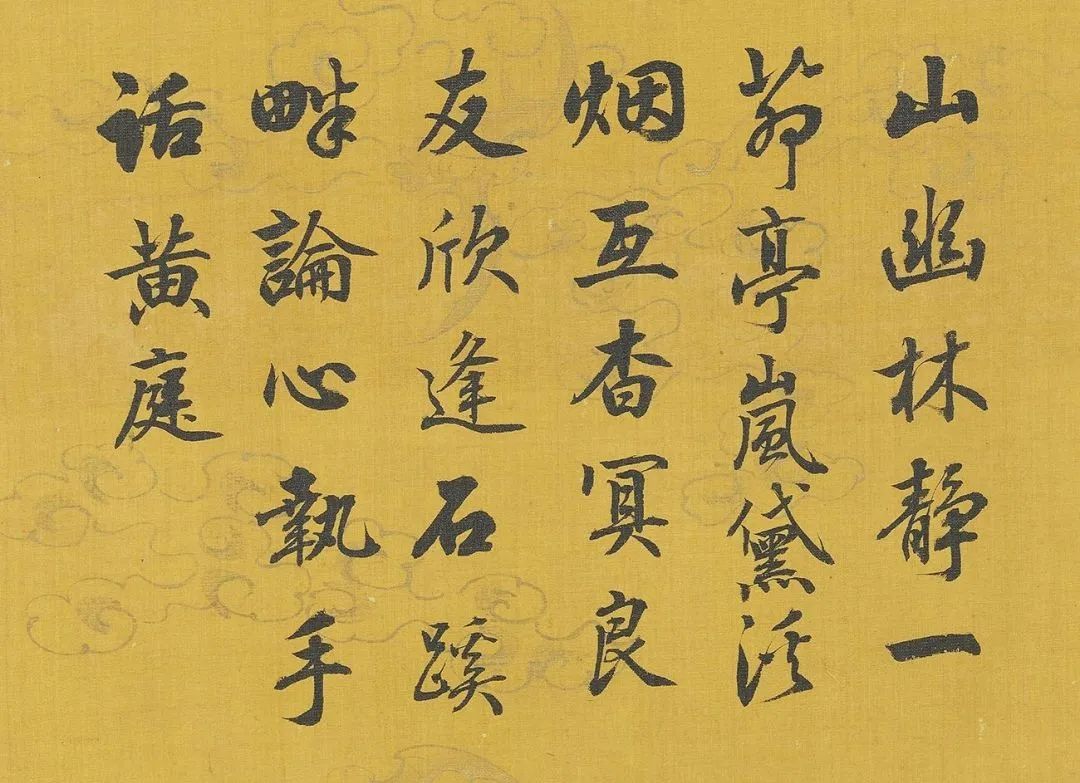 山幽林静一
茆亭嵐黛溪
烟互杳冥良
友欣逢石蹊
畔論心執手
話黄庭